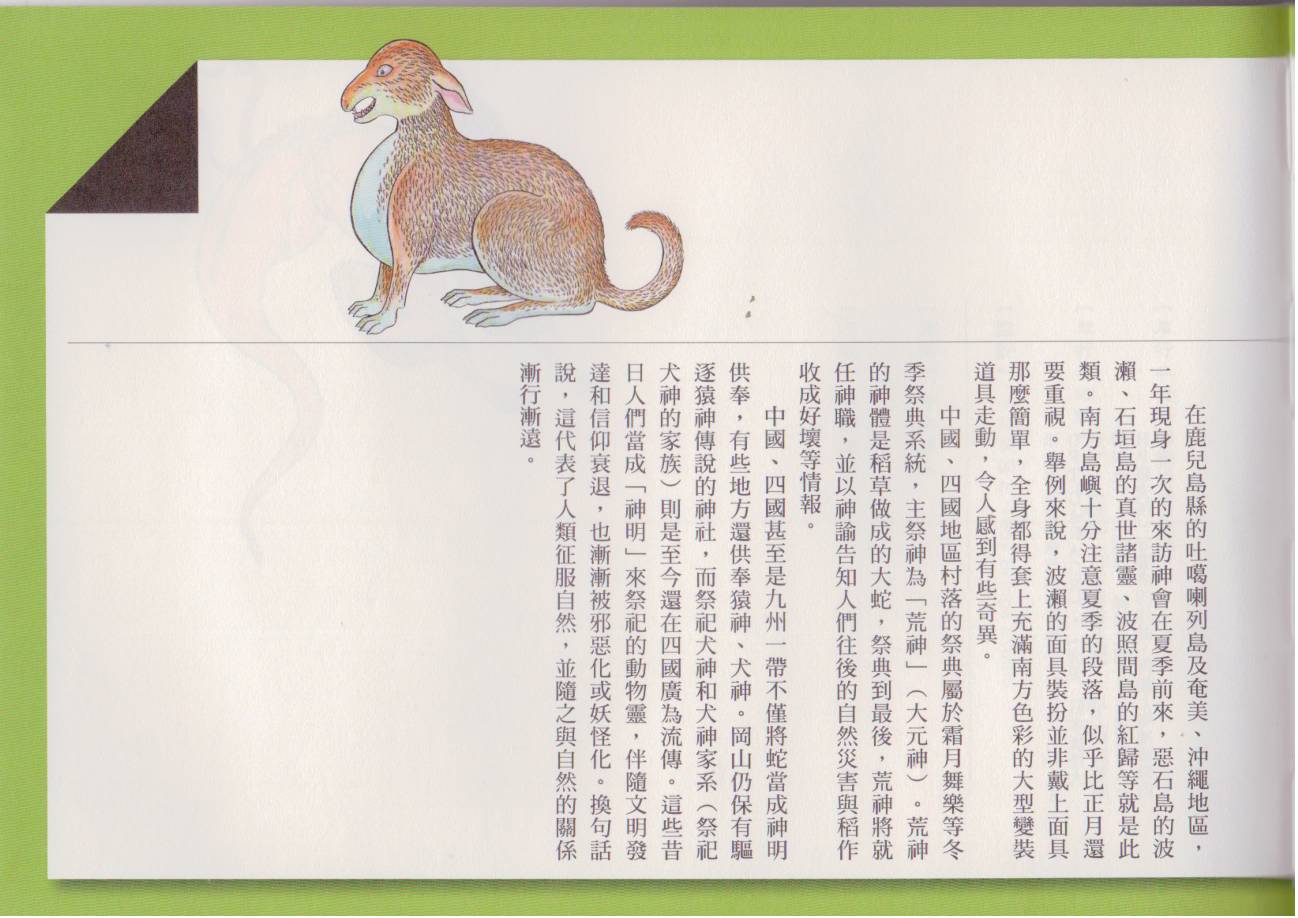 在鹿兒島縣的吐噶喇列島及奄美、沖繩地區，
一年現身一次的來訪神會在夏季前來，惡石島的波
瀨、石垣島的真世諸靈、波照間島的紅歸等就是此
類。南方島嶼十分注意夏季的段落，似乎比正月還
要重視。舉例來說，波瀨的面具裝扮並非戴上面具
那麼簡單，全身都得套上充滿南方色彩的大型變裝
道具走動，令人感到有些奇異。
中國、四國地區村落的祭典屬於霜月舞樂等冬
季祭典系統，主祭神為「荒神」（大元神）。荒神
的神體是稻草做成的大蛇，祭典到最後，荒神將就
任神職，並以神諭告知人們往後的自然災害與稻作
收成好壞等情報。
中國、四國甚至是九州一帶不僅將蛇當成神明
供奉，有些地方還供奉猿神、犬神。岡山仍保有驅
逐猿神傳說的神社，而祭祀犬神和犬神家系（祭祀
犬神的家族）則是至今還在四國廣為流傳。這些昔
日人們當成「神明」來祭祀的動物靈，伴隨文明發
達和信仰衰退，也漸漸被邪惡化或妖怪化。換句話
說，這代表了人類征服自然，並隨之與自然的關係
漸行漸遠。